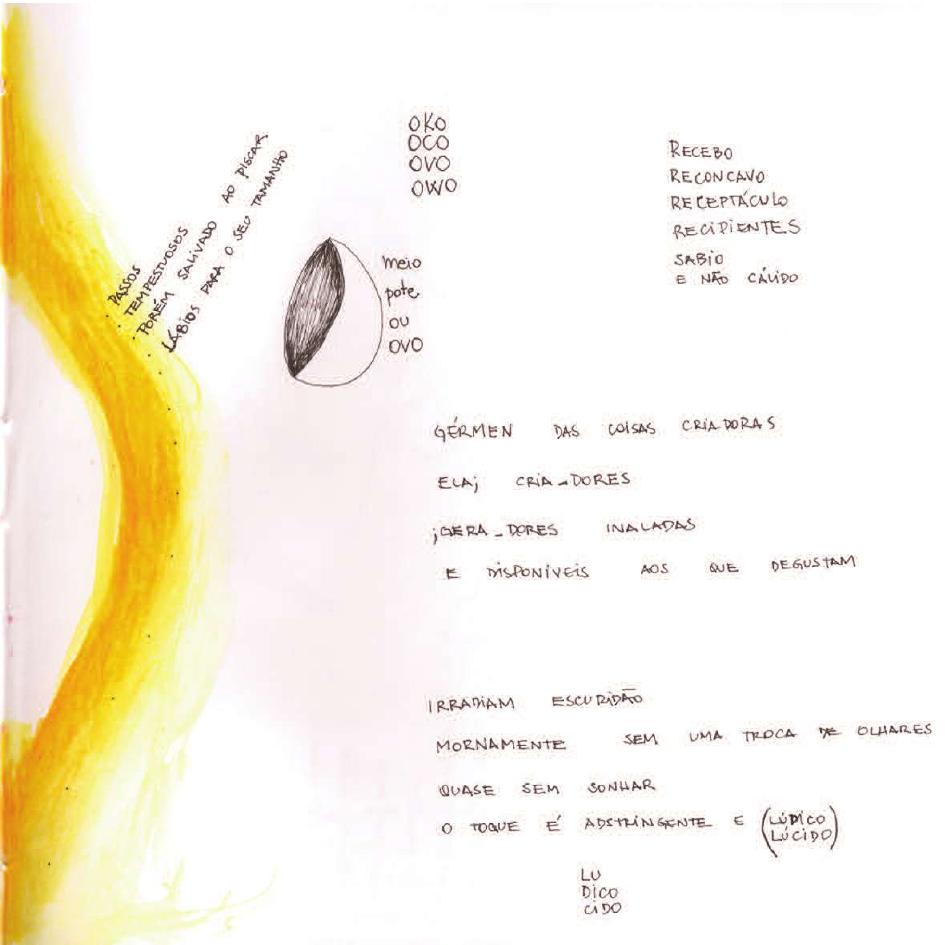 PASSOS
TEMPESTUOSOS
PORÉM SALIVADO AO PISCAR
LÁBIOS PARA O SEU TAMANHO
OKO
OCO
OVO
OWO
meio
pote
ou
OVO
RECEBO
RECONCAVO
RECEPTÁCULO
RECIPIENTES
SABIO
E NÃO CÁLIDO
GÉRMEN DAS COISAS CRIADORAS
ELA; CRIA-DORES
;GERA-DORES INALADAS
E DISPONÍVEIS AOS QUE DEGUSTAM
IRRADIAM ESCURIDÃO
MORNAMENTE SEM UMA TROCA DE OLHARES
QUASE SEM SONHAR
O TOQUE É ADSTRINGENTE E (LÚDICO
LÚCIDO)
LU
DICO
CIDO